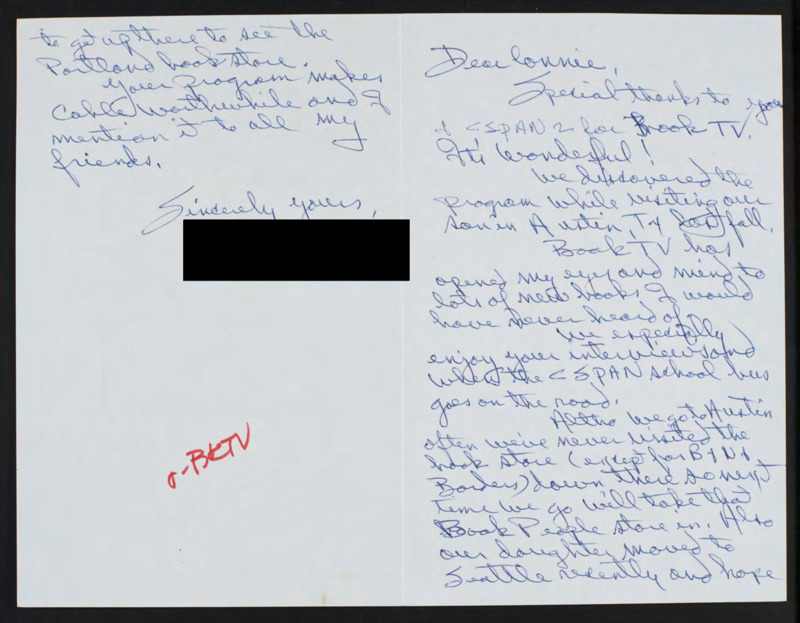 Dear Connie,
Special thanks to you
+ CSPAN 2 for Book TV.
It's wonderful!
We discovered the
program while visiting our
son in Austin, TX last fall.
Book TV has
opened my eyes and mind to
lots of new books I would
have never heard of.
We especially
enjoy your interviews and
when the CSPAN school bus
goes on the road.
Altho we go to Austin
often we've never visited the
book store (except for B+N+
Borders) down there so next
time we go we'll take that
Book People store in. Also
our daughter moved to
Seattle recently and hope
to get up there to see the
Portland book store.
Your program makes
Cable worthwhile and I
mention it to all my
friends.
Sincerely yours,
BKTV